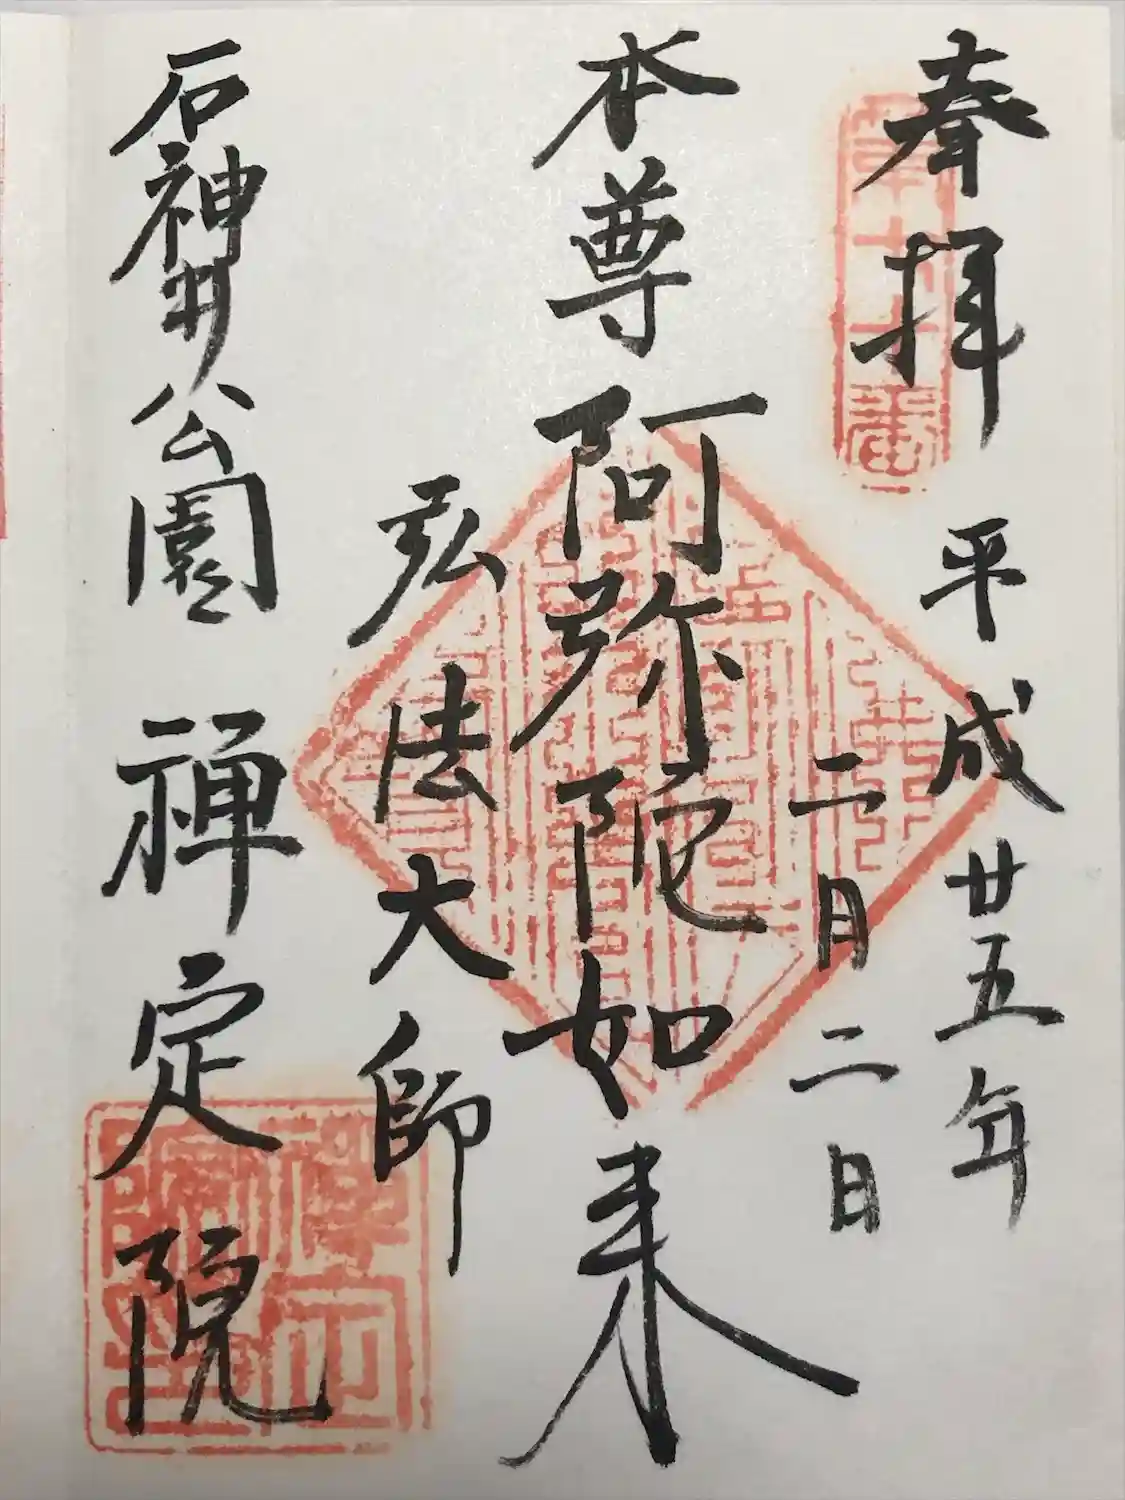 奉拝 平成廿五年
二月二日
本尊 阿弥陀如来
弘法大師
石神井公園 禅定院